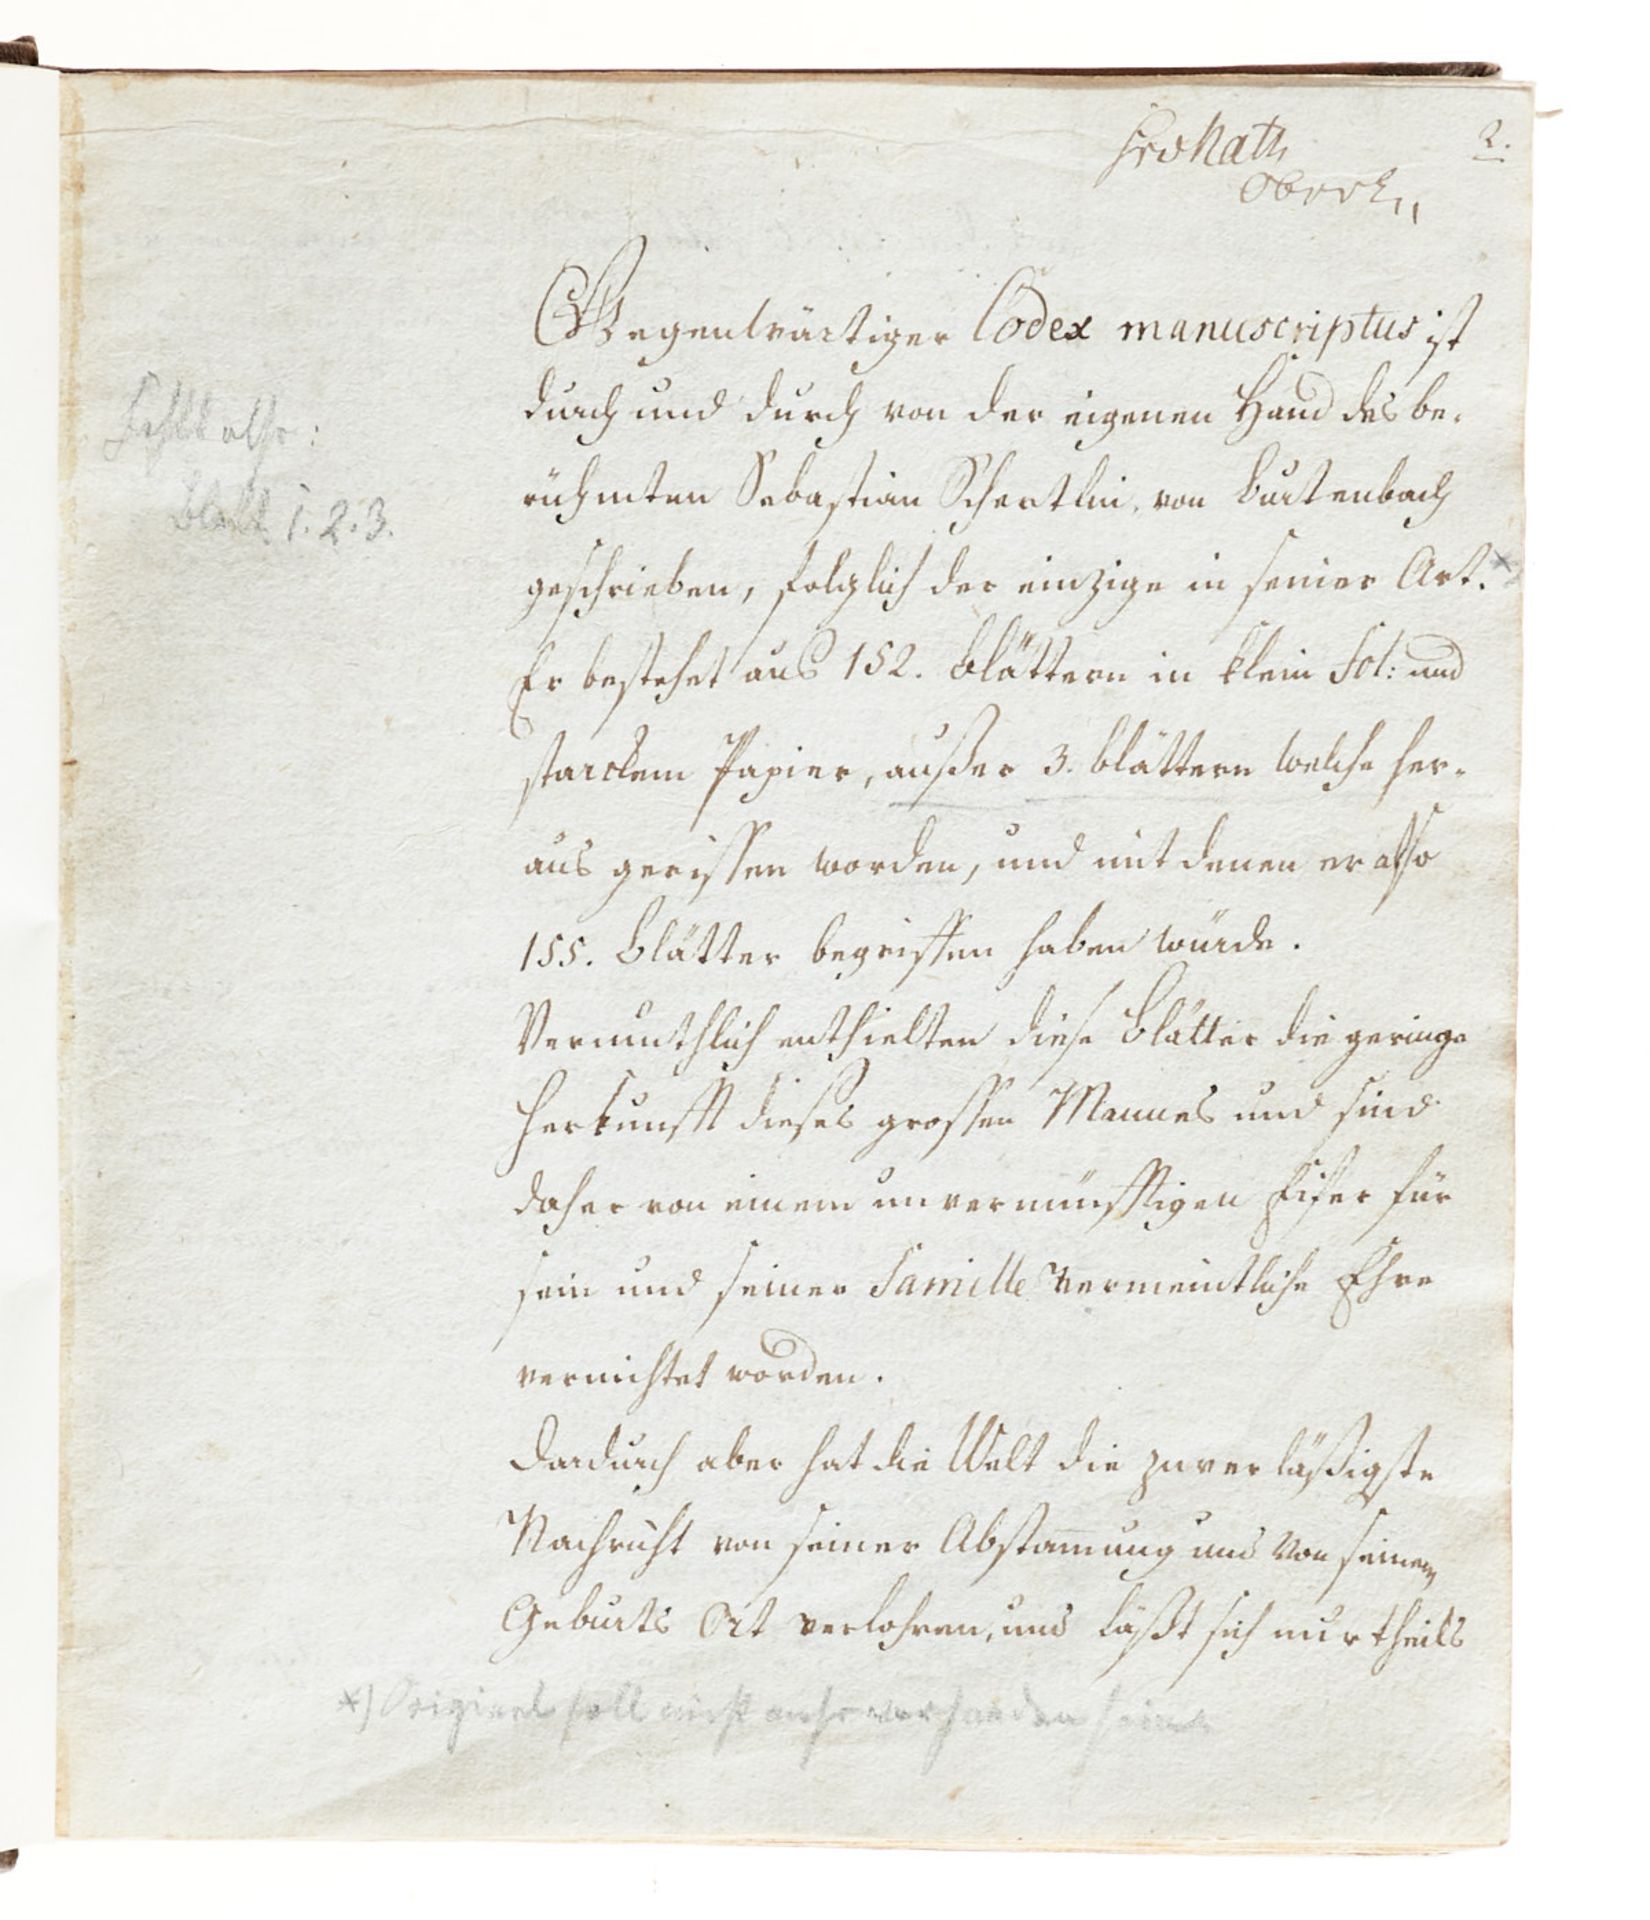 2.
Gegenwärtiger Codex manuscriptus ist
durch und durch von der eigenen Hand des be-
rühmten Sebastian Schertlin, von Burtenbach
geschrieben, folglich der einzige in seiner Art. *)
Er bestehet aus 152. Blättern in klein Fol: und
starckem Papier, außer 3. Blättern welche her-
aus gerissen worden, und mit denen er also
155. Blätter begriffen haben würde.
Vermuthlich enthielten diese Blätter die geringe
Herkunfft dieses grossen Mannes und sind
daher von einem unvernünfftigen Eifer für
sein und seiner Familie vermeintliche Ehre
vernichtet worden.
Dardurch aber hat die Welt die zuverläßigste
Nachricht von seiner Abstam̅ung und von seinem
Geburts Ort verlohren, und läßt sich nur theils
Fehlt also:
Blatt 1. 2. 3.
*) Original soll nicht mehr vorhanden sein